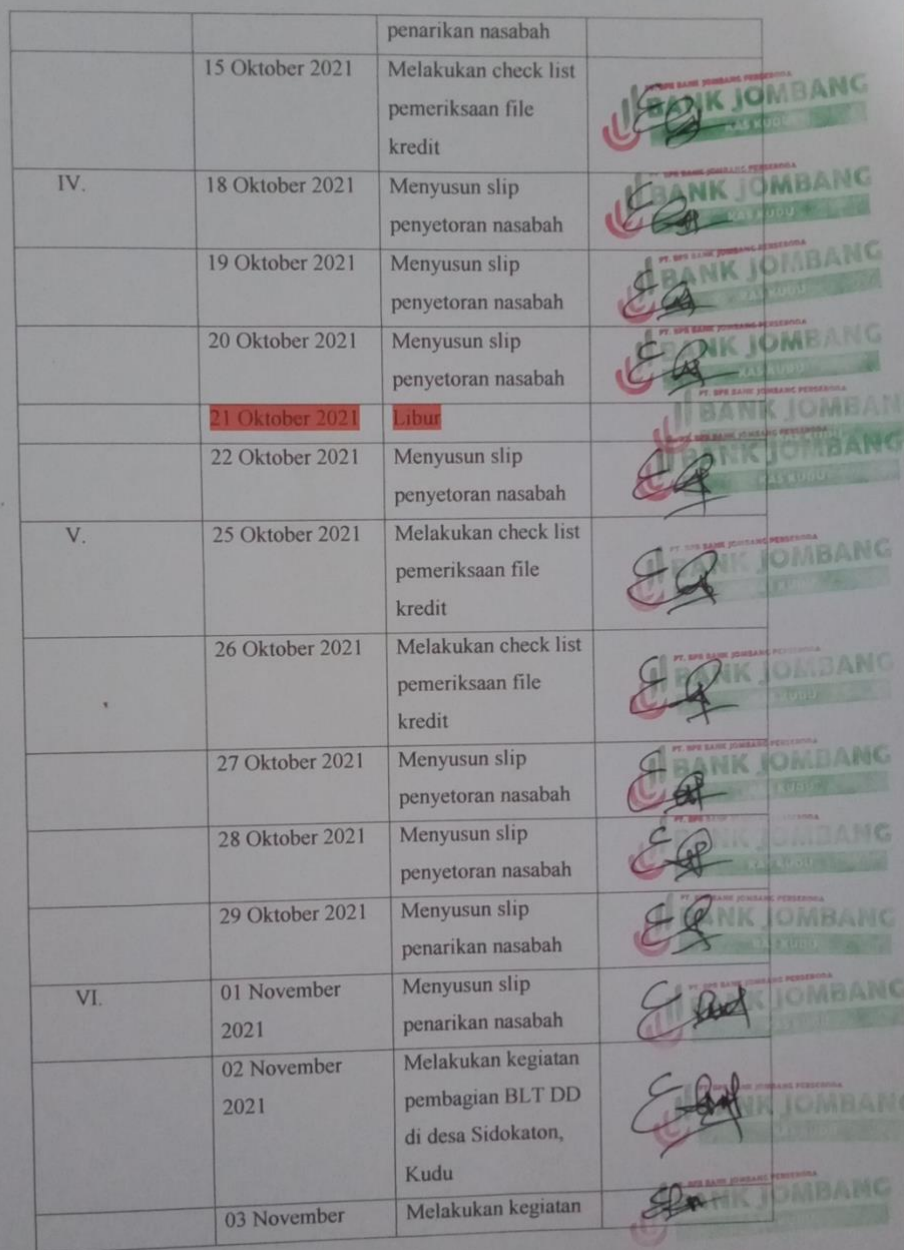 penarikan nasabah
15 Oktober 2021
Melakukan check list
pemeriksaan file
kredit
PT. BPR BANK JOMBANG PERSERODA
BANK JOMBANG
KAS KUDU
IV.
18 Oktober 2021
Menyusun slip
penyetoran nasabah
PT. BPR BANK JOMBANG PERSERODA
BANK JOMBANG
KAS KUDU
19 Oktober 2021
Menyusun slip
penyetoran nasabah
PT. BPR BANK JOMBANG PERSERODA
BANK JOMBANG
KAS KUDU
20 Oktober 2021
Menyusun slip
penyetoran nasabah
PT. BPR BANK JOMBANG PERSERODA
BANK JOMBANG
KAS KUDU
21 Oktober 2021
Libur
PT. BPR BANK JOMBANG PERSERODA
BANK JOMBAN
22 Oktober 2021
Menyusun slip
penyetoran nasabah
BPR BANK JOMBANG PERSERODA
BANK JOMBANG
KAS KUDU
V.
25 Oktober 2021
Melakukan check list
pemeriksaan file
kredit
PT. BPR BANK JOMBANG PERSERODA
BANK JOMBANG
26 Oktober 2021
Melakukan check list
pemeriksaan file
kredit
PT. BPR BANK JOMBANG PERSERODA
BANK JOMBANG
KUDU
27 Oktober 2021
Menyusun slip
penyetoran nasabah
PT. BPR BANK JOMBANG PERSERODA
BANK JOMBANG
KUDU
28 Oktober 2021
Menyusun slip
penyetoran nasabah
BANK JOMBANG
KUDU
29 Oktober 2021
Menyusun slip
penarikan nasabah
BANK JOMBANG PERSERODA
BANK JOMBANG
KAS KUDU
VI.
01 November
2021
Menyusun slip
penarikan nasabah
PT. BPR BANK JOMBANG PERSERODA
JOMBANG
02 November
2021
Melakukan kegiatan
pembagian BLT DD
di desa Sidokaton,
Kudu
PT. BPR BANK JOMBANG PERSERODA
NK JOMBAN
03 November
Melakukan kegiatan
BPR BANK JOMBANG PERSERODA
ANK JOMBANG